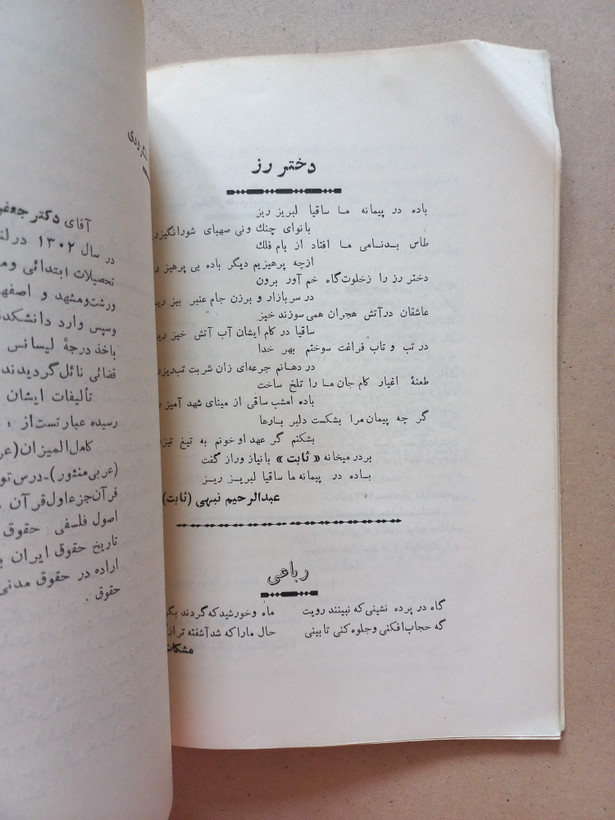 دختر رز
باده در پیمانه ما ساقیا لبریز ریز
بانوای چنك ونی صهبای شورانگیز
طاس بدنامی ما افتاد از بام فلك
ازچه پرهیزیم دیگر باده بی پرهیز
دختر رز را زخلوت‌گاه خم آور برون
در سر بازار و برزن جام عنبر بیز
عاشقان درآتش هجران همی سوزند خیز
ساقیا در کام ایشان آب آتش خیز
در تب و تاب فراغت سوختم بهر خدا
در دهانم جرعه‌ای زان شربت
طعنهٔ اغیار کام جان ما را تلخ ساخت
باده امشب ساقی از مینای شهد آمیز
گر چه پیمان مرا بشکست دلبر بارها
بشکنم گر عهد او خونم به تیغ تیز
بردر میخانه « ثابت » بانیاز وراز گفت
باده در پیمانه ما ساقیا لبریز ریز
عبدالرحیم نبهی (ثابت)
رباعی
گاه در پرده نشینی که نبینند رویت ماه وخورشید که گردند
گه حجاب افکنی و جلوه کنی تا بینی حال ما را که شد آشفته تر
آقای دکتر جعفر
در سال ۱۳۰۲ در
تحصیلات ابتدائی
ورشت‌ومشهد و
وسپس وارد
باخذ درجهٔ لیسانس
قضائی نائل گردیدند
تألیفات ایشان
رسیده عبارتست‌از :
کامل‌المیزان
(عربی‌منثور)-درس
قرآن‌جزءاول‌قرآن
اصول فلسفی حقوق
تاریخ حقوق ایران
اراده در حقوق مدنی
حقوق .